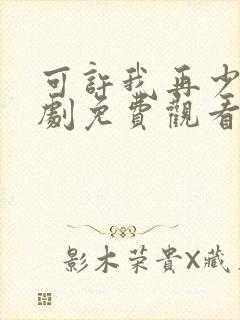 可許我再少
劇免費觀看
影木荣貴X藏